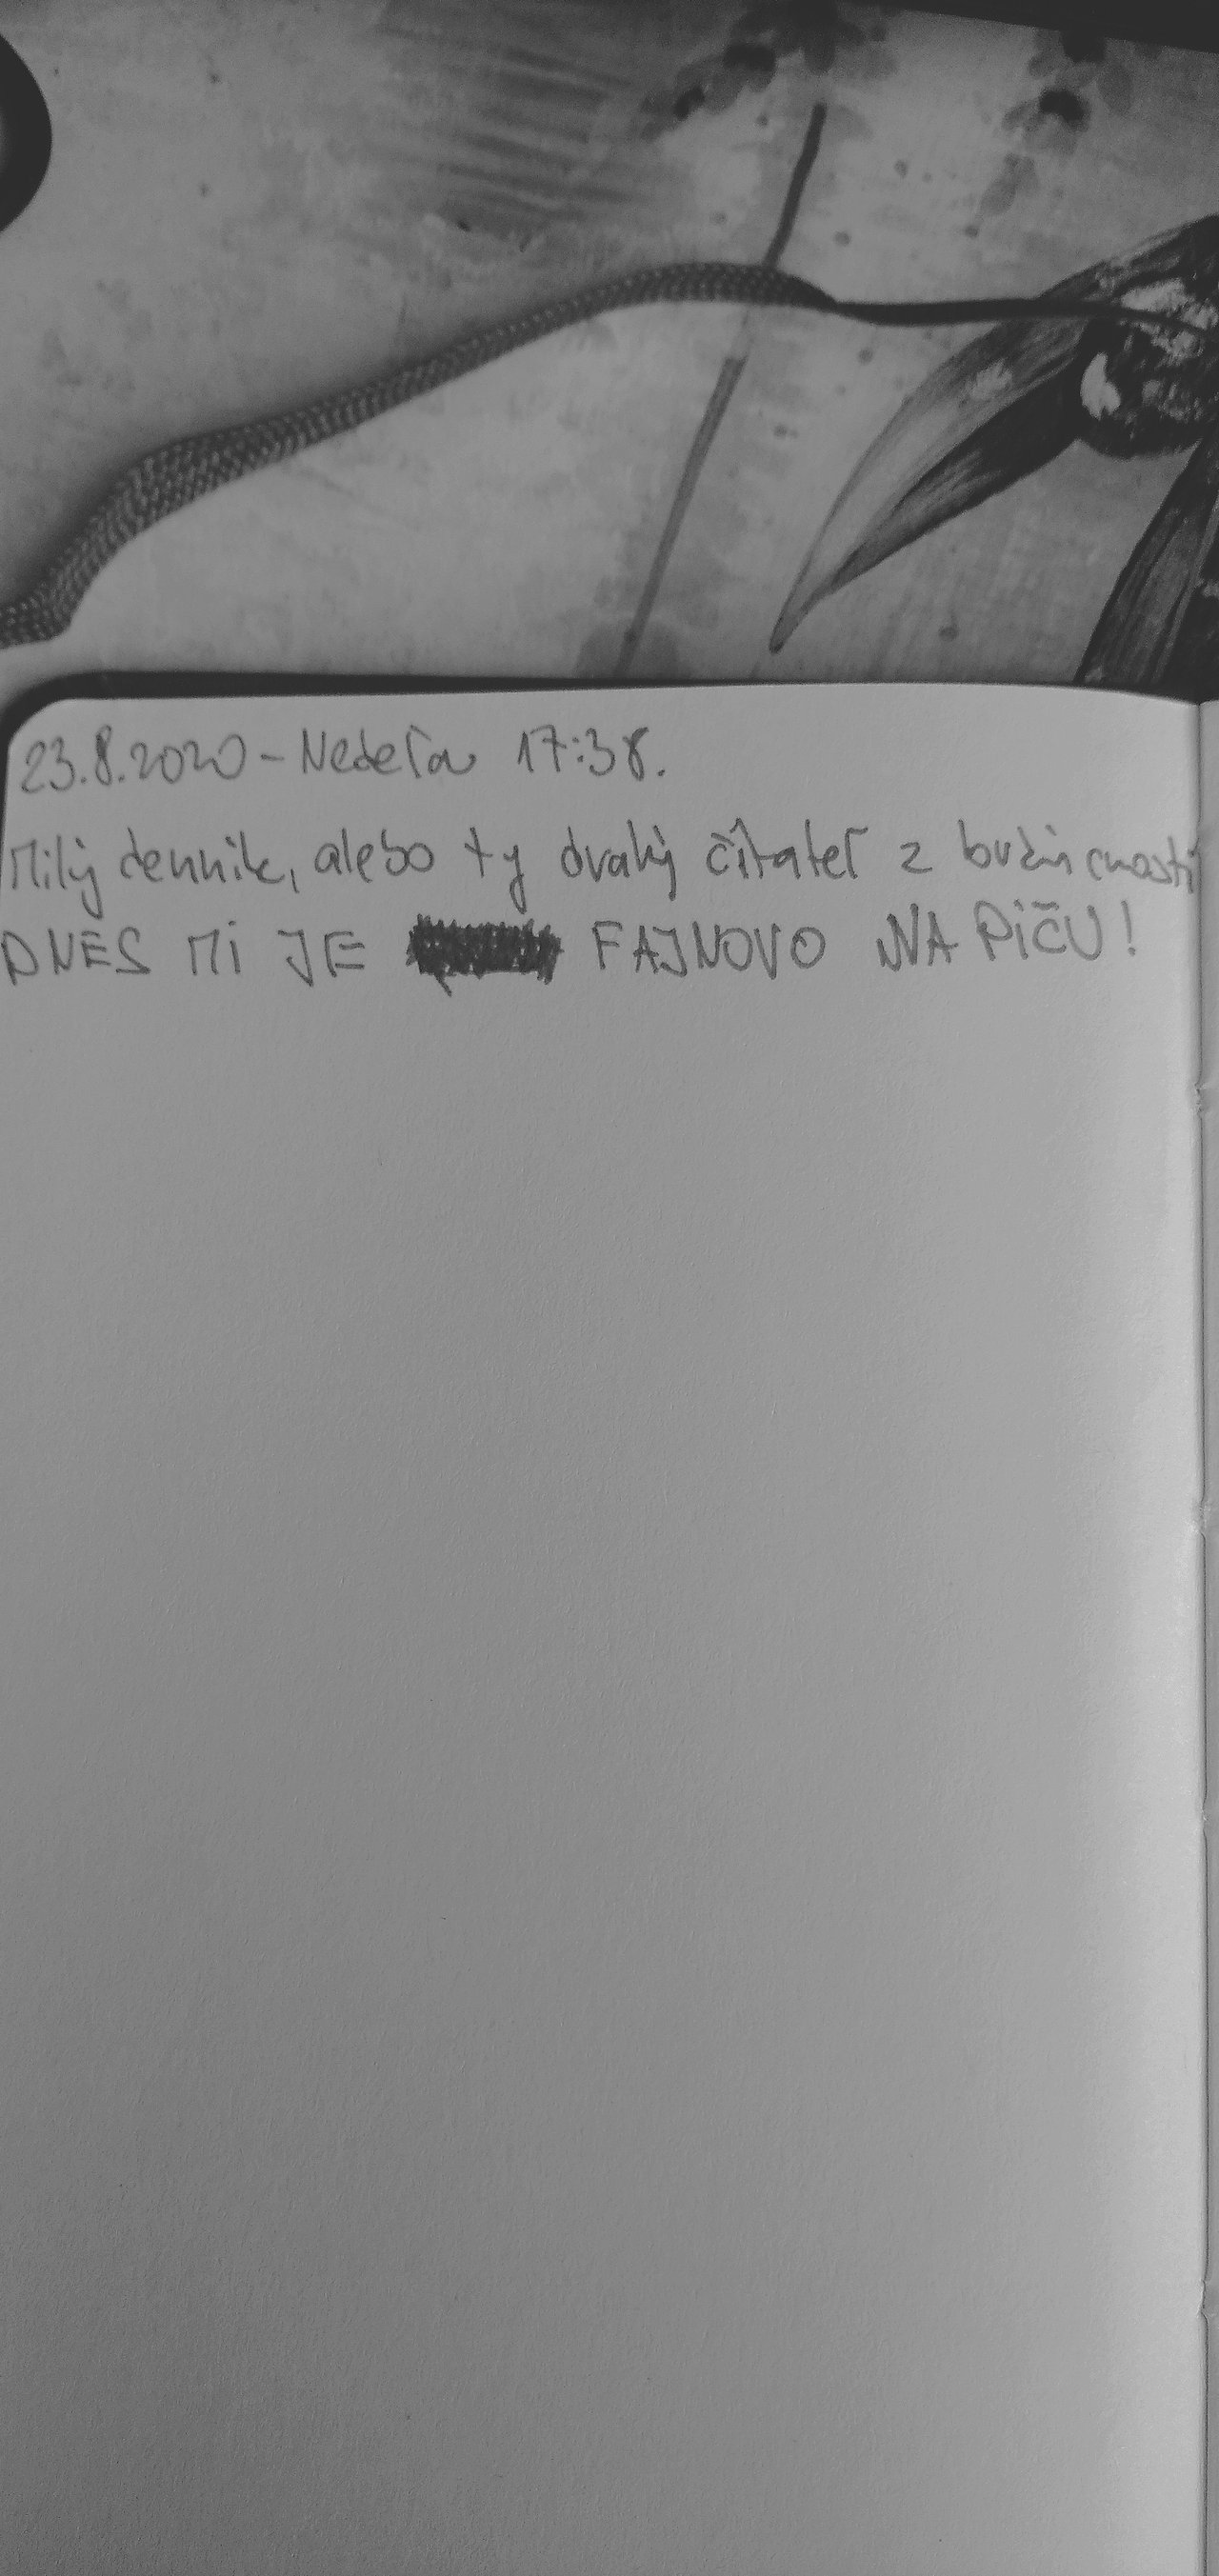 23.8.2020 - Nedeľa 17:38.
Milý denník, alebo ty drahý čitateľ z budúcnosti
DNES MI JE FAJNOVO NA PIČU!